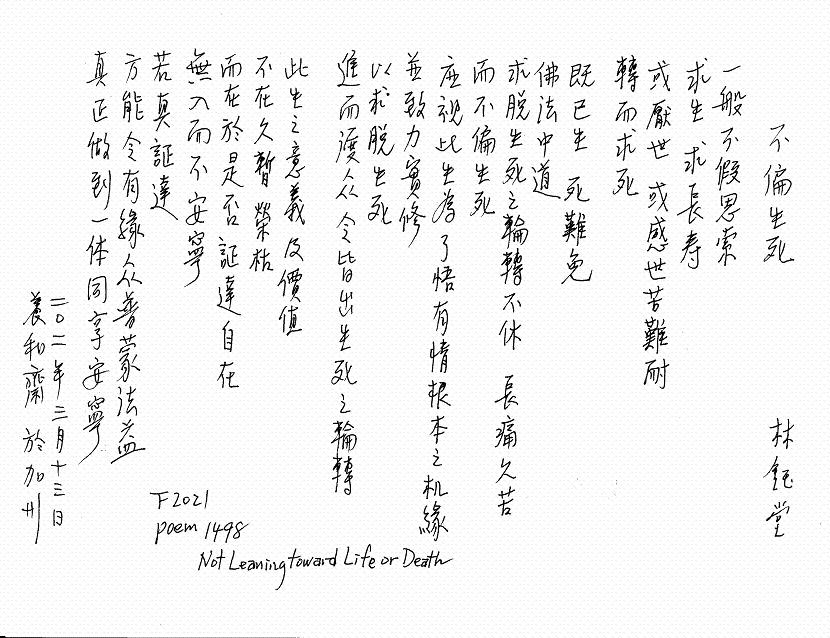 不偏生死
林鈺堂
一般不假思索
求生 求長寿
或厭世 或感世苦難耐
轉而求死
既已生 死難免
佛法中道
求脫生死之輪轉不休 長痛久苦
而不偏生死
应視此生為了悟有情根本之机緣
並致力實修
以求脫生死
進而渡众令皆出生死之輪轉
此生之意義及價值
不在久暫榮枯
而在於是否証達自在
無入而不安寧
若真証達
方能令有緣众普蒙法益
真正做到一体同享安寧
二〇二一年三月十三日
養和齋 於加州
F2021
poem 1498
Not Leaning toward Life or Death